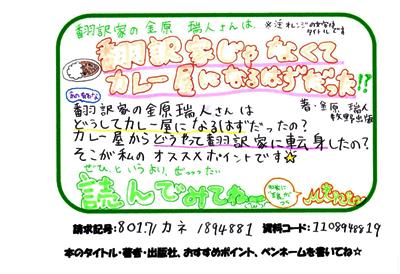 翻訳家の金原瑞人さんは、
※注 オレンジの文字はタイトルです
翻訳家じゃなくて
カレー屋になるはずだった!?
あの有名な
翻訳家の金原瑞人さんは
著・金原 瑞人
牧野出版
どうしてカレー屋になるはずだったの?
カレー屋からどうやって翻訳家に転身したの?
そこが私のオススメポイントです☆
ぜひ、というより、ぜっったい
読んでみてね
請求記号:8017/カネ 1894881 資料コード:1108948819
本のタイトル・著者・出版社、おすすめポイント、ペンネームを書いてね☆